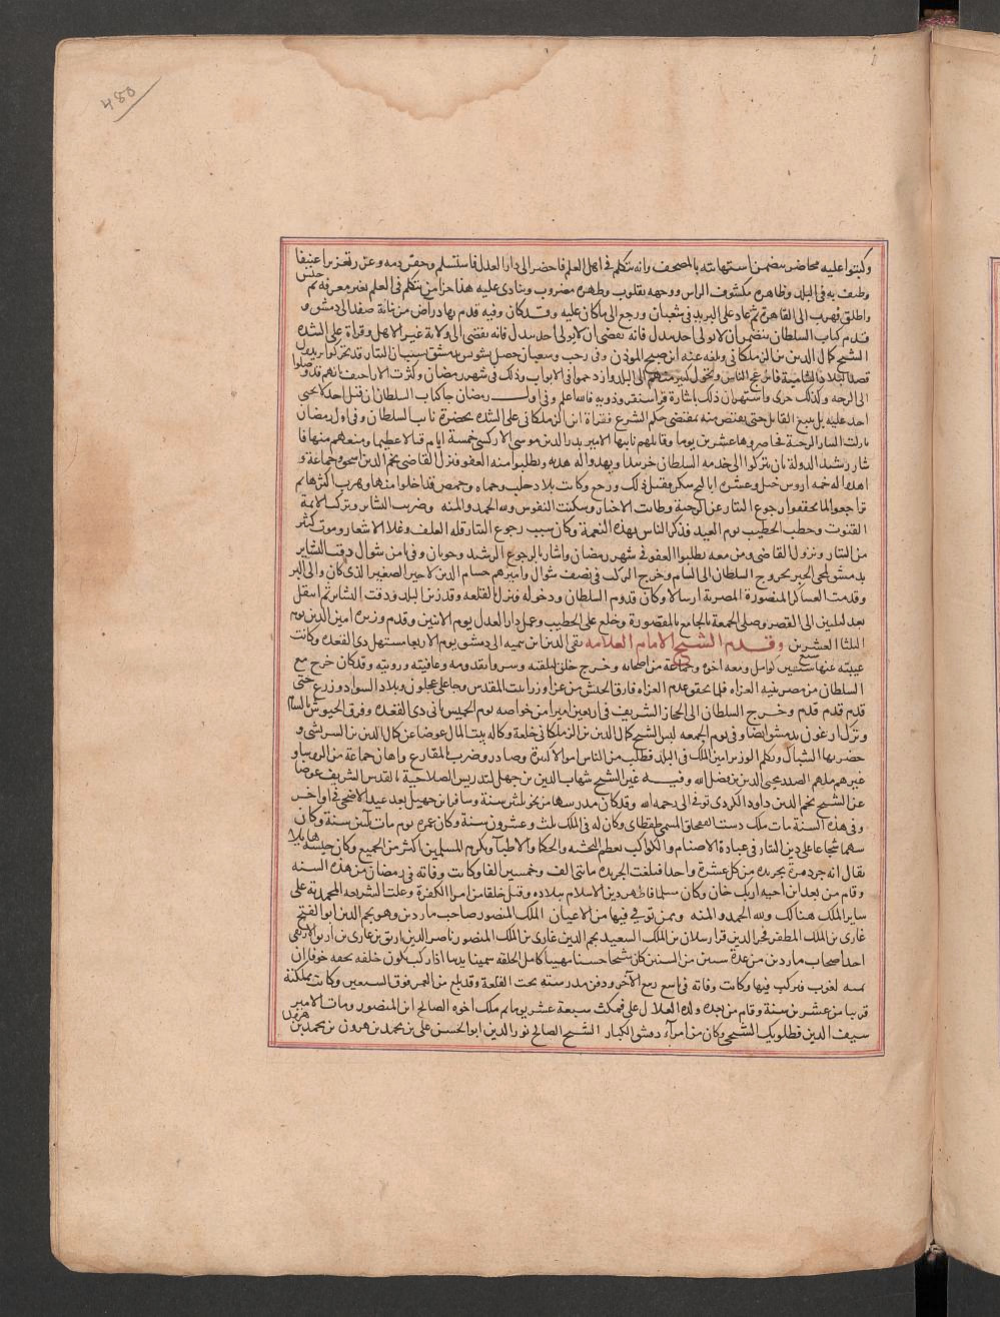 480
وكتبوا عليه محاضر يتضمن استهانته بالمصحف وانه يتكلم في اهل العلم فاحضر الى دار العدل فاستسلم وحقن دمه وعزر تعزيرا عنيفا
وطيف به في البلد وظاهره مكشوف الراس ووجهه مقلوب وظهره مضروب وينادى عليه هذا جزا من يتكلم في العلم بغير معرفة ثم حبس
واطلق فهرب الى القاهرة ثم عاد على البريد في شعبان ورجع الى ما كان عليه وفيه قدم بهادراص من نيابة صفد الى دمشق و
قدم كتاب السلطان يتضمن ان لا يولى احد بمال فانه يفضي الى ولاية غير الاهل وقراه على السدة
الشيخ كمال الدين بن الزملكاني وبلغه عنه ابن صبيح الموذن وفي رجب وشعبان حصل تشويش بدمشق بسبب ان التتار قد تحركوا
الى الرحبة وكذلك جرى واشتهر ان ذلك باشارة قراسنقر وذويه فالله اعلم وفي اول رمضان جا كتاب السلطان ان من قتل احدا لا يجني
احد عليه بل يتبع القاتل حتى يقتص منه بمقتضى حكم الشرع فقراه ابن الزملكاني على السدة بحضرة نايب السلطان وفي اول رمضان
نازلت التتار الرحبة فحاصروها عشرين يوما وقاتلهم نايبها الامير بدر الدين موسى الازكشي خمسة ايام قتالا عظيما ومنعهم منها فا
شار رشيد الدولة بان ينزلوا الى خدمة السلطان خربندا ويهدوا له هدية ويطلبوا منه العفو فنزل القاضي نجم الدين اسحق وجماعة و
تراجعوا لما تحققوا رجوع التتار عن الرحبة وطابت الاخبار وسكنت النفوس ولله الحمد والمنة وضربت البشاير وتركت الايمة
القنوت وخطب الخطيب يوم العيد فذكر الناس بهذه النعمة وكان سبب رجوع التتار قلة العلف وغلا الاسعار وموت كثير
من التتار ونزول القاضي ومن معه يطلبوا العفو في شهر رمضان واشار بالرجوع الرشيد وجوبان وفي ثامن شوال دقت البشاير
بدمشق لمجي الخبر بخروج السلطان الى الشام وخرج الركب في نصف شوال واميرهم حسام الدين لاجين الصغير الذي كان والي البر
وقدمت العساكر المنصورة المصرية ارسالا وكان قدوم السلطان ودخوله فنزل القلعة وقد زين البلد ودقت البشاير ثم انتقل
بعد ليلتين الى القصر وصلى الجمعة بالجامع بالمقصورة وخلع على الخطيب وعمل دار العدل يوم الاثنين وقدم وزيره امين الدين يوم
الثلثا العشرين وقدم الشيخ الامام العلامة تقي الدين ابن تيميه الى دمشق يوم الاربعا مستهل ذي القعدة وكانت
غيبته عنها سبع سنين كوامل ومعه اخوه وجماعة من اصحابه وخرج خلق لتلقيه وسروا بقدومه وعافيته ورويته وقد كان خرج مع
السلطان من مصر بنية الغزاة فلما تحقق عدم الغزاة فارق الجيش من غزة وزار بيت المقدس وجا على عجلون وبلاد السواد وزرع حتى
قدم قدم وخرج السلطان الى الحجاز الشريف في اربعين اميرا من خواصه يوم الخميس ثاني ذي القعدة وفرق الجيوش بالشام
وترك ارغون بدمشق ايضا وفي يوم الجمعة لبس الشيخ كمال الدين بن الزملكاني خلعة وكالة بيت المال عوضا عن كمال الدين بن الشريشي و
حضر بها الشباك وتكلم الوزير امين الملك في البلد فطلب من الناس اموالا كثيرة وصادر وضرب بالمقارع واهان جماعة من الروسا و
غيرهم منهم الصدر محيي الدين بن فضل الله وفيه عين الشيخ شهاب الدين بن جهبل لتدريس الصلاحية بالقدس الشريف عوضا
عن الشيخ نجم الدين داود الكردي توفي الى رحمة الله وقد كان مدرسها من نحو ثلثين سنة وسافر ابن جهبل بعد عيد الاضحى في اواخر
وفي هذه السنة مات ملك دست القبجاق المسمى طقطاي وكان له في الملك ثلث وعشرون سنة وكان عمره يوم مات ثلثين سنة وكان
شهما شجاعا على دين التتار في عبادة الاصنام والكواكب يعظم المجسمة والحكما والاطبا ويكرم المسلمين اكثر من الجميع وكان جيشه هايلا
يقال انه جرد مرة تجريده من كل عشرة واحدا فبلغت التجريدة مايتي الف وخمسين الفا وكانت وفاته في رمضان من هذه السنة
وقام من بعده ابن اخيه ازبك خان وكان مسلما فاظهر دين الاسلام ببلاده وقتل خلقا من امرا الكفرة وعلت الشريعة المحمدية على
ساير الملك هنالك ولله الحمد والمنة وممن توفي فيها من الاعيان الملك المنصور صاحب ماردين وهو نجم الدين ابو الفتح
غازي بن الملك المظفر فخر الدين قرا ارسلان بن الملك السعيد نجم الدين غازي بن الملك المنصور ناصر الدين ارتق بن غازي بن ارتق الارتقي
احد اصحاب ماردين من عدة سنين من السنين كان شيخا حسنا مهيبا كامل الخلقة سمينا بدينا اذا ركب يكون خلفه محفة خوفا ان
يمسه لغوب فيركب فيها وكانت وفاته في تاسع ربيع الآخر ودفن مدرسته تحت القلعة وقد بلغ من العمر فوق السبعين وكانت مملكته
قريبا من عشرين سنة وقام من بعده ولده العادل علي فمكث سبعة عشر يوما ثم ملك اخوه الصالح ابن المنصور ومات الامير
سيف الدين قطلوبك الشيخي وكان من امرا دمشق الكبار الشيخ الصالح نور الدين ابو الحسن علي بن محمد بن هرون بن محمد بن هرون